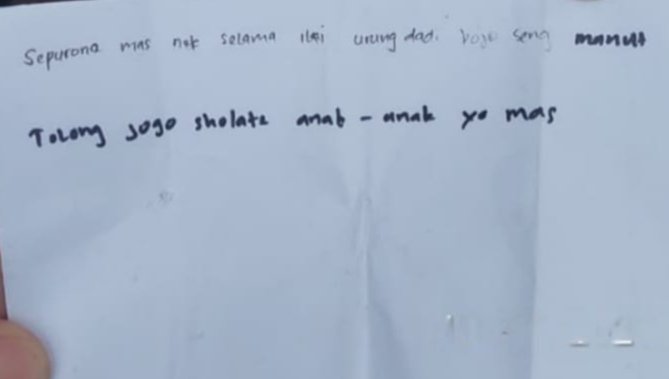 Sepurono mas nek selama iki urung dadi bojo seng manut
Tolong jogo sholate anak - anak yo mas